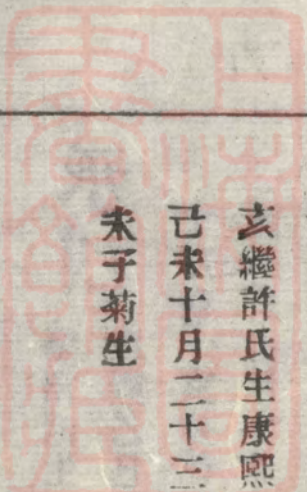 亥繼許氏生康熙
己未十月二十三
未子菊生